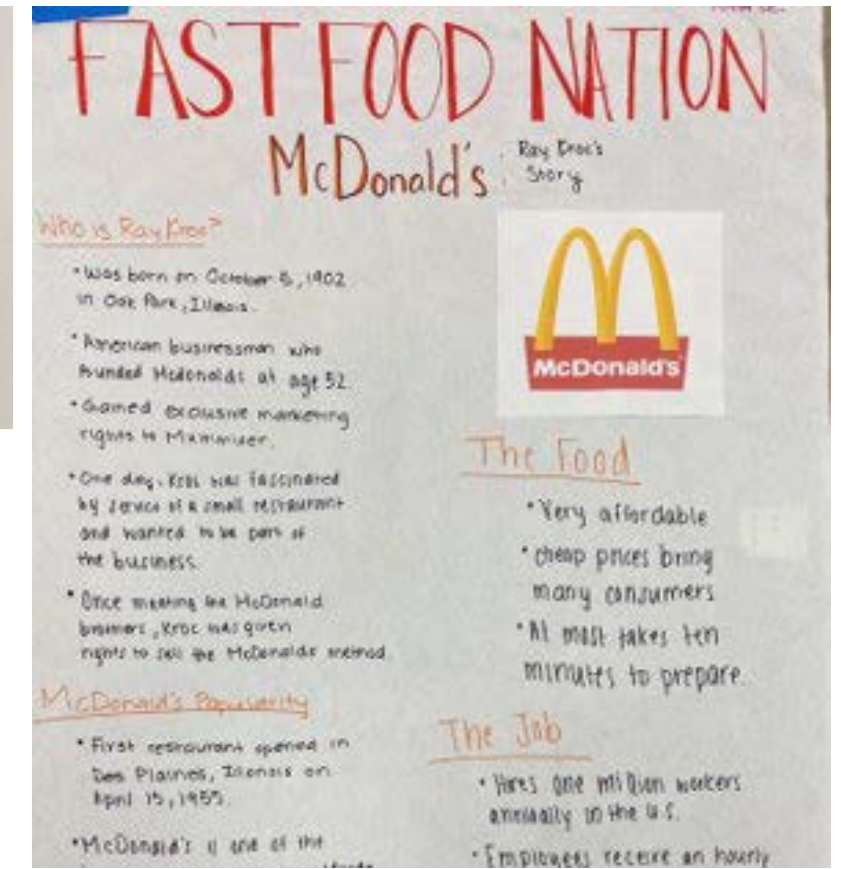 FAST FOOD NATION
McDonald's:
Ray Kroc's
Story
Who is Ray Kroc?
• Was born on October 5, 1902
in Oak Park, Illinois.
• American businessman who
founded McDonalds at age 52.
• Gained exclusive marketing
rights to
• One day, Kroc was fascinated
by service of a small restaurant
and wanted to be part of
the business.
• Once meeting the McDonald
brothers, Kroc was given
rights to sell the McDonalds method.
McDonald's Popularity
• First restaurant opened in
Des Plaines, Illinois on
April 15, 1955.
• McDonald's is one of the
McDonald's
The Food
• Very affordable
• cheap prices bring
many consumers
• At most takes ten
minutes to prepare.
The Job
• Hires one million workers
annually in the U.S.
• Employees receive an hourly